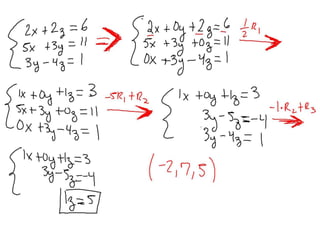 2x + 2z = 6
5x + 3y = 11
3y - 4z = 1
2x + 0y + 2z = 6
5x + 3y + 0z = 11
0x + 3y - 4z = 1
1/2 R1
1x + 0y + 1z = 3
5x + 3y + 0z = 11
0x + 3y - 4z = 1
-5R1 + R2
1x + 0y + 1z = 3
3y - 5z = -4
3y - 4z = 1
-1·R2 + R3
1x + 0y + 1z = 3
3y - 5z = -4
1z = 5
(-2, 7, 5)